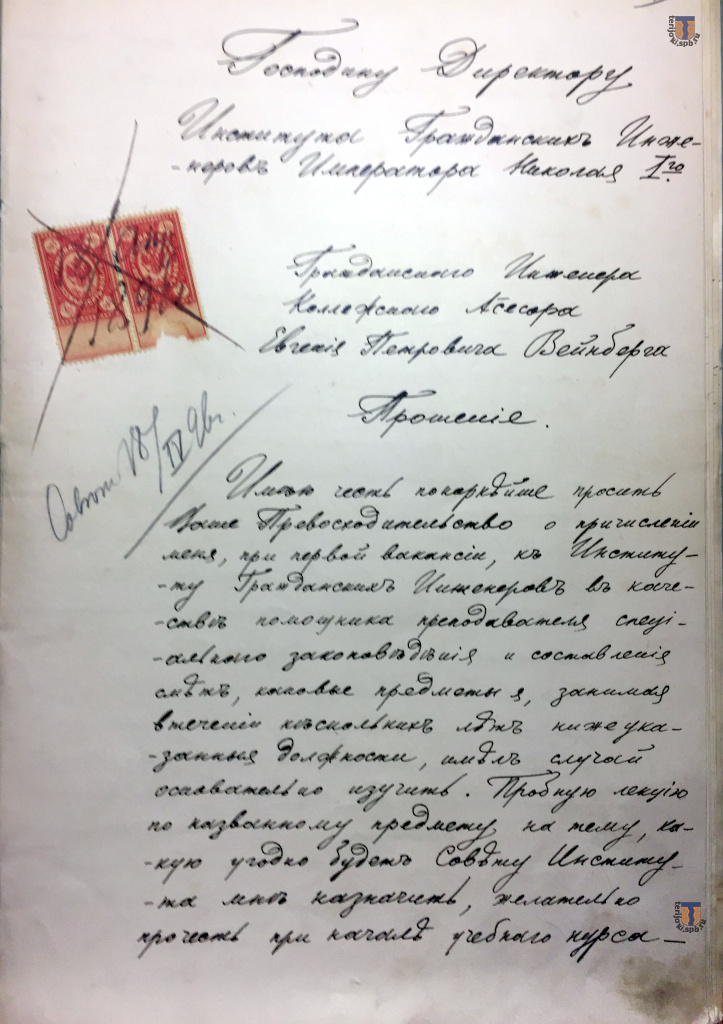 Господину Директору
Института Гражданскихъ Инже-
-неровъ Императора Николая Iго
Гражданскаго Инженера
Коллежскаго Асесора
Евгенія Петровича Вейнберга
Прошеніе.
18/IV 96г.
Имѣю честь покорнѣйше просить
Ваше Превосходительство о причисленіи
меня, при первой вакансіи, къ Институ-
-ту Гражданскихъ Инженеровъ въ каче-
-ствѣ помощника преподавателя спеці-
-альнаго законовѣдѣнія и составленія
смѣтъ, каковые предметы я, занимая
втеченіи нѣсколькихъ лѣтъ нижеука-
-занныя должности, имѣлъ случай
основательно изучить. Пробную лекцію
по названному предмету, на тему, ка-
-кую угодно будетъ Совѣту Институ-
-та мнѣ назначить, желательно
прочесть при началѣ учебнаго курса
terijoki.spb.ru
terijoki.spb.ru